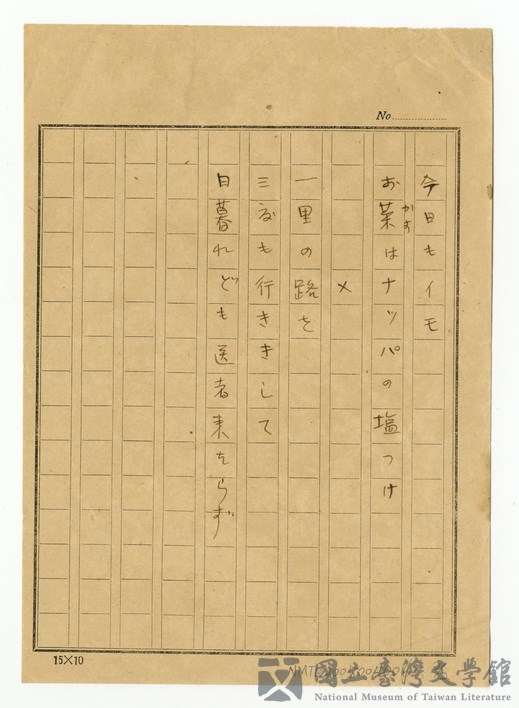 No
今日もイモ
お菜はナッパの塩つけ
かず
×
一里の路を
三度も行ききして
日暮れども医者来たらず
15×10
國立臺灣文學館
National Museum of Taiwan Literature